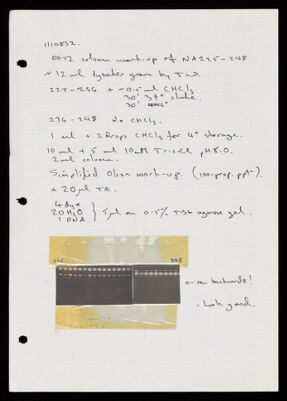 111083 2.
column work-up of NA225-248
~ 12 ml lysates grown by
+ ~0.5 ml CHCl3
30' 37° shake.
30'
236-248 No CHCl3.
1 ml + 2 Drops CHCl3 for 4° storage.
10 ml + 5 ml 10mM Tris.Cl pH 8.0.
2ml column.
Simplified work-up. (iso-prop. ppt-).
+ 20 µl T.E.
4 dye
20 H2O
1 DNA
} 5 µl on 0.5% TBE agarose gel.
225 248
← ran backwards!
- Look good.